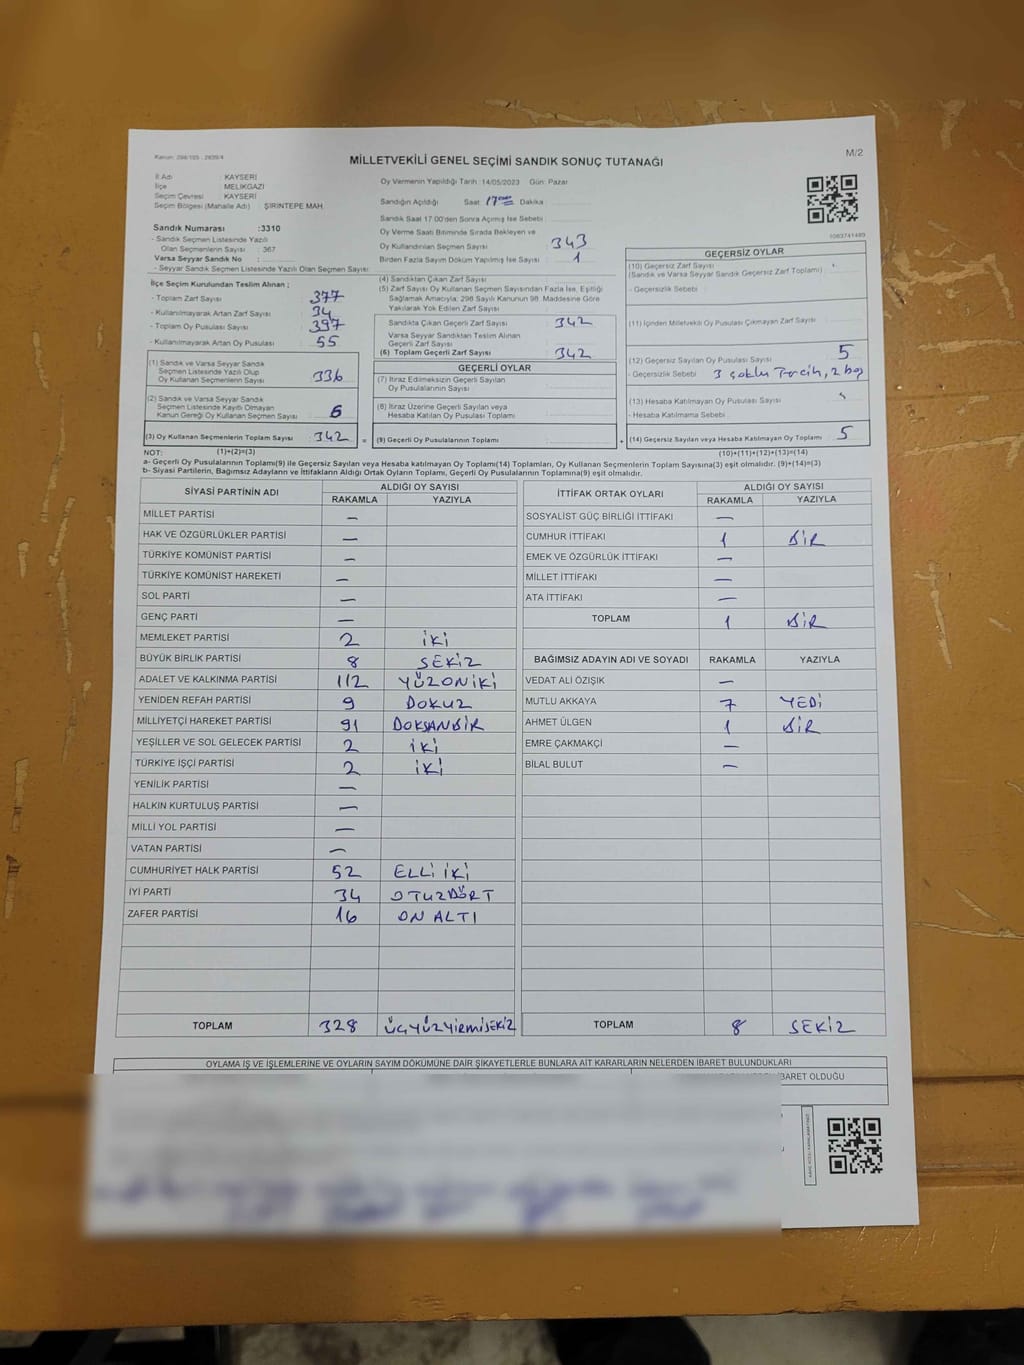 Kanun: 298/105 - 2839/4
MİLLETVEKİLİ GENEL SEÇİMİ SANDIK SONUÇ TUTANAĞI
M/2
İl Adı : KAYSERİ
İlçe : MELİKGAZİ
Seçim Çevresi : KAYSERİ
Seçim Bölgesi (Mahalle Adı) : ŞİRİNTEPE MAH.
Sandık Numarası :3310
- Sandık Seçmen Listesinde Yazılı
Olan Seçmenlerin Sayısı : 367
Varsa Seyyar Sandık No :
- Seyyar Sandık Seçmen Listesinde Yazılı Olan Seçmen Sayısı:
İlçe Seçim Kurulundan Teslim Alınan ;
- Toplam Zarf Sayısı : 377
- Kullanılmayarak Artan Zarf Sayısı : 34
- Toplam Oy Pusulası Sayısı : 397
- Kullanılmayarak Artan Oy Pusulası : 55
(1) Sandık ve Varsa Seyyar Sandık
Seçmen Listesinde Yazılı Olup
Oy Kullanan Seçmenlerin Sayısı : 336
(2) Sandık ve Varsa Seyyar Sandık
Seçmen Listesinde Kayıtlı Olmayan
Kanun Gereği Oy Kullanan Seçmen Sayısı : 6
(3) Oy Kullanan Seçmenlerin Toplam Sayısı : 342 =
Oy Vermenin Yapıldığı Tarih : 14/05/2023 Gün: Pazar
Sandığın Açıldığı Saat : 17 Dakika :
Sandık Saat 17.00'den Sonra Açılmış İse Sebebi :
Oy Verme Saati Bitiminde Sırada Bekleyen ve
Oy Kullandırılan Seçmen Sayısı : 343
Birden Fazla Sayım Döküm Yapılmış İse Sayısı : 1
(4) Sandıktan Çıkan Zarf Sayısı :
(5) Zarf Sayısı Oy Kullanan Seçmen Sayısından Fazla İse, Eşitliği
Sağlamak Amacıyla; 298 Sayılı Kanunun 98. Maddesine Göre
Yakılarak Yok Edilen Zarf Sayısı :
Sandıkta Çıkan Geçerli Zarf Sayısı : 342
Varsa Seyyar Sandıktan Teslim Alınan
Geçerli Zarf Sayısı :
(6) Toplam Geçerli Zarf Sayısı : 342
GEÇERLİ OYLAR
(7) İtiraz Edilmeksizin Geçerli Sayılan
Oy Pusulası Sayısı :
(8) İtiraz Üzerine Geçerli Sayılan veya
Hesaba Katılan Oy Pusulası Toplamı :
(9) Geçerli Oy Pusulalarının Toplamı : +
1063741449
GEÇERSİZ OYLAR
(10) Geçersiz Zarf Sayısı
(Sandık ve Varsa Seyyar Sandık Geçersiz Zarf Toplamı) :
- Geçersizlik Sebebi :
(11) İçinden Milletvekili Oy Pusulası Çıkmayan Zarf Sayısı :
(12) Geçersiz Sayılan Oy Pusulası Sayısı : 5
- Geçersizlik Sebebi : 3 çoklu Tercih, 2 boş
(13) Hesaba Katılmayan Oy Pusulası Sayısı :
- Hesaba Katılmama Sebebi :
(14) Geçersiz Sayılan veya Hesaba Katılmayan Oy Toplamı : 5
NOT: (1)+(2)=(3) (10)+(11)+(12)+(13)=(14)
a- Geçerli Oy Pusulalarının Toplamı(9) ile Geçersiz Sayılan veya Hesaba katılmayan Oy Toplamı(14) Toplamları, Oy Kullanan Seçmenlerin Toplam Sayısına(3) eşit olmalıdır. (9)+(14)=(3)
b- Siyasi Partilerin, Bağımsız Adayların ve İttifakların Aldığı Ortak Oyların Toplamı, Geçerli Oy Pusulalarının Toplamına(9) eşit olmalıdır.
SİYASİ PARTİNİN ADI ALDIĞI OY SAYISI
RAKAMLA YAZIYLA
MİLLET PARTİSİ —
HAK VE ÖZGÜRLÜKLER PARTİSİ —
TÜRKİYE KOMÜNİST PARTİSİ —
TÜRKİYE KOMÜNİST HAREKETİ —
SOL PARTİ —
GENÇ PARTİ —
MEMLEKET PARTİSİ 2 İKİ
BÜYÜK BİRLİK PARTİSİ 8 SEKİZ
ADALET VE KALKINMA PARTİSİ 112 YÜZONİKİ
YENİDEN REFAH PARTİSİ 9 DOKUZ
MİLLİYETÇİ HAREKET PARTİSİ 91 DOKSANBİR
YEŞİLLER VE SOL GELECEK PARTİSİ 2 İKİ
TÜRKİYE İŞÇİ PARTİSİ 2 İKİ
YENİLİK PARTİSİ —
HALKIN KURTULUŞ PARTİSİ —
MİLLİ YOL PARTİSİ —
VATAN PARTİSİ —
CUMHURİYET HALK PARTİSİ 52 ELLİ İKİ
İYİ PARTİ 34 OTUZDÖRT
ZAFER PARTİSİ 16 ON ALTI
TOPLAM 328 ÜÇYÜZYİRMİSEKİZ
İTTİFAK ORTAK OYLARI ALDIĞI OY SAYISI
RAKAMLA YAZIYLA
SOSYALİST GÜÇ BİRLİĞİ İTTİFAKI —
CUMHUR İTTİFAKI 1 BİR
EMEK VE ÖZGÜRLÜK İTTİFAKI —
MİLLET İTTİFAKI —
ATA İTTİFAKI —
TOPLAM 1 BİR
BAĞIMSIZ ADAYIN ADI VE SOYADI RAKAMLA YAZIYLA
VEDAT ALİ ÖZIŞIK —
MUTLU AKKAYA 7 YEDİ
AHMET ÜLGEN 1 BİR
EMRE ÇAKMAKÇİ —
BİLAL BULUT —
TOPLAM 8 SEKİZ
OYLAMA İŞ VE İŞLEMLERİNE VE OYLARIN SAYIM DÖKÜMÜNE DAİR ŞİKAYETLERLE BUNLARA AİT KARARLARIN NELERDEN İBARET BULUNDUKLARI
İBARET OLDUĞU